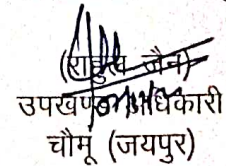 (राहुल जैन)
उपखण्ड अधिकारी
चौमू (जयपुर)